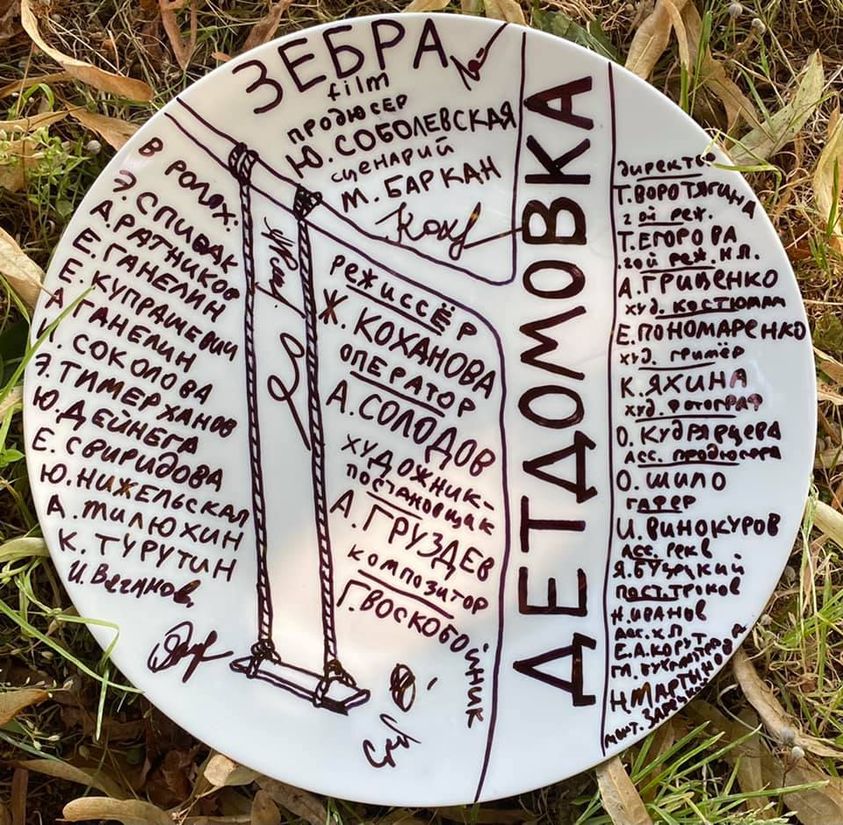 ЗЕБРА
film
продюсер
Ю. СОБОЛЕВСКАЯ
сценарий
М. БАРКАН
В РОЛЯХ:
Э. СПИВАК
А. РАТНИКОВ
Е. ГАНЕЛИН
Е. КУПРАШЕВИЧ
А ГАНЕЛИН
СОКОЛОВА
Э. ТИМЕРХАНОВ
Ю. ДЕЙНЕГА
Е. СВИРИДОВА
Ю. НИЖЕЛЬСКАЯ
А. МИЛЮХИН
К. ТУРУТИН
режиссёр
Ж. КОХАНОВА
ОПЕРАТОР
А. СОЛОДОВ
художник-
постановщик
А. ГРУЗДЕВ
композитор
Г. ВОСКОБОЙНИК
ДЕТДОМОВКА
директор
Т. ВОРОТЯГИНА
2 ой реж.
Т. ЕГОРОВА
2ой реж. н.п.
А. ГРИВЕНКО
худ. костюмам
Е. ПОНОМАРЕНКО
худ. гримёр
К. ЯХИНА
худ. фотограф
О. КУДРЯВЦЕВА
асс. продюсера
О. ШИЛО
гафер
И. ВИНОКУРОВ
асс. рекв
пост. троков
Н. ИВАНОВ
асс. х.п.
Е.А. КОРУТ
Н. МАРТИНОВА